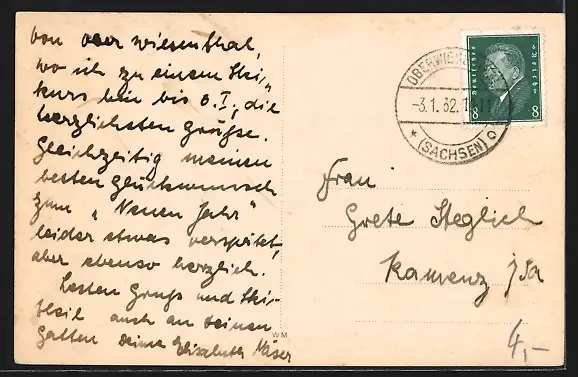 von Oberwiesenthal,
wo ich zu einem Ski-
kurs bin bis 8. I., die
herzlichsten Grüße.
Gleichzeitig meinen
besten Glückwunsch
zum "Neuen Jahr"
leider etwas verspätet,
aber ebenso herzlich.
Besten Gruß und Ski-
heil auch an deinen
Gatten Deine Elisabeth
WM
OBERWIESENTHAL
-3.1.32.
* (SACHSEN)
Deutsches Reich
8 8
Frau
Grete Steglich
Kamenz i/Sa
4,-